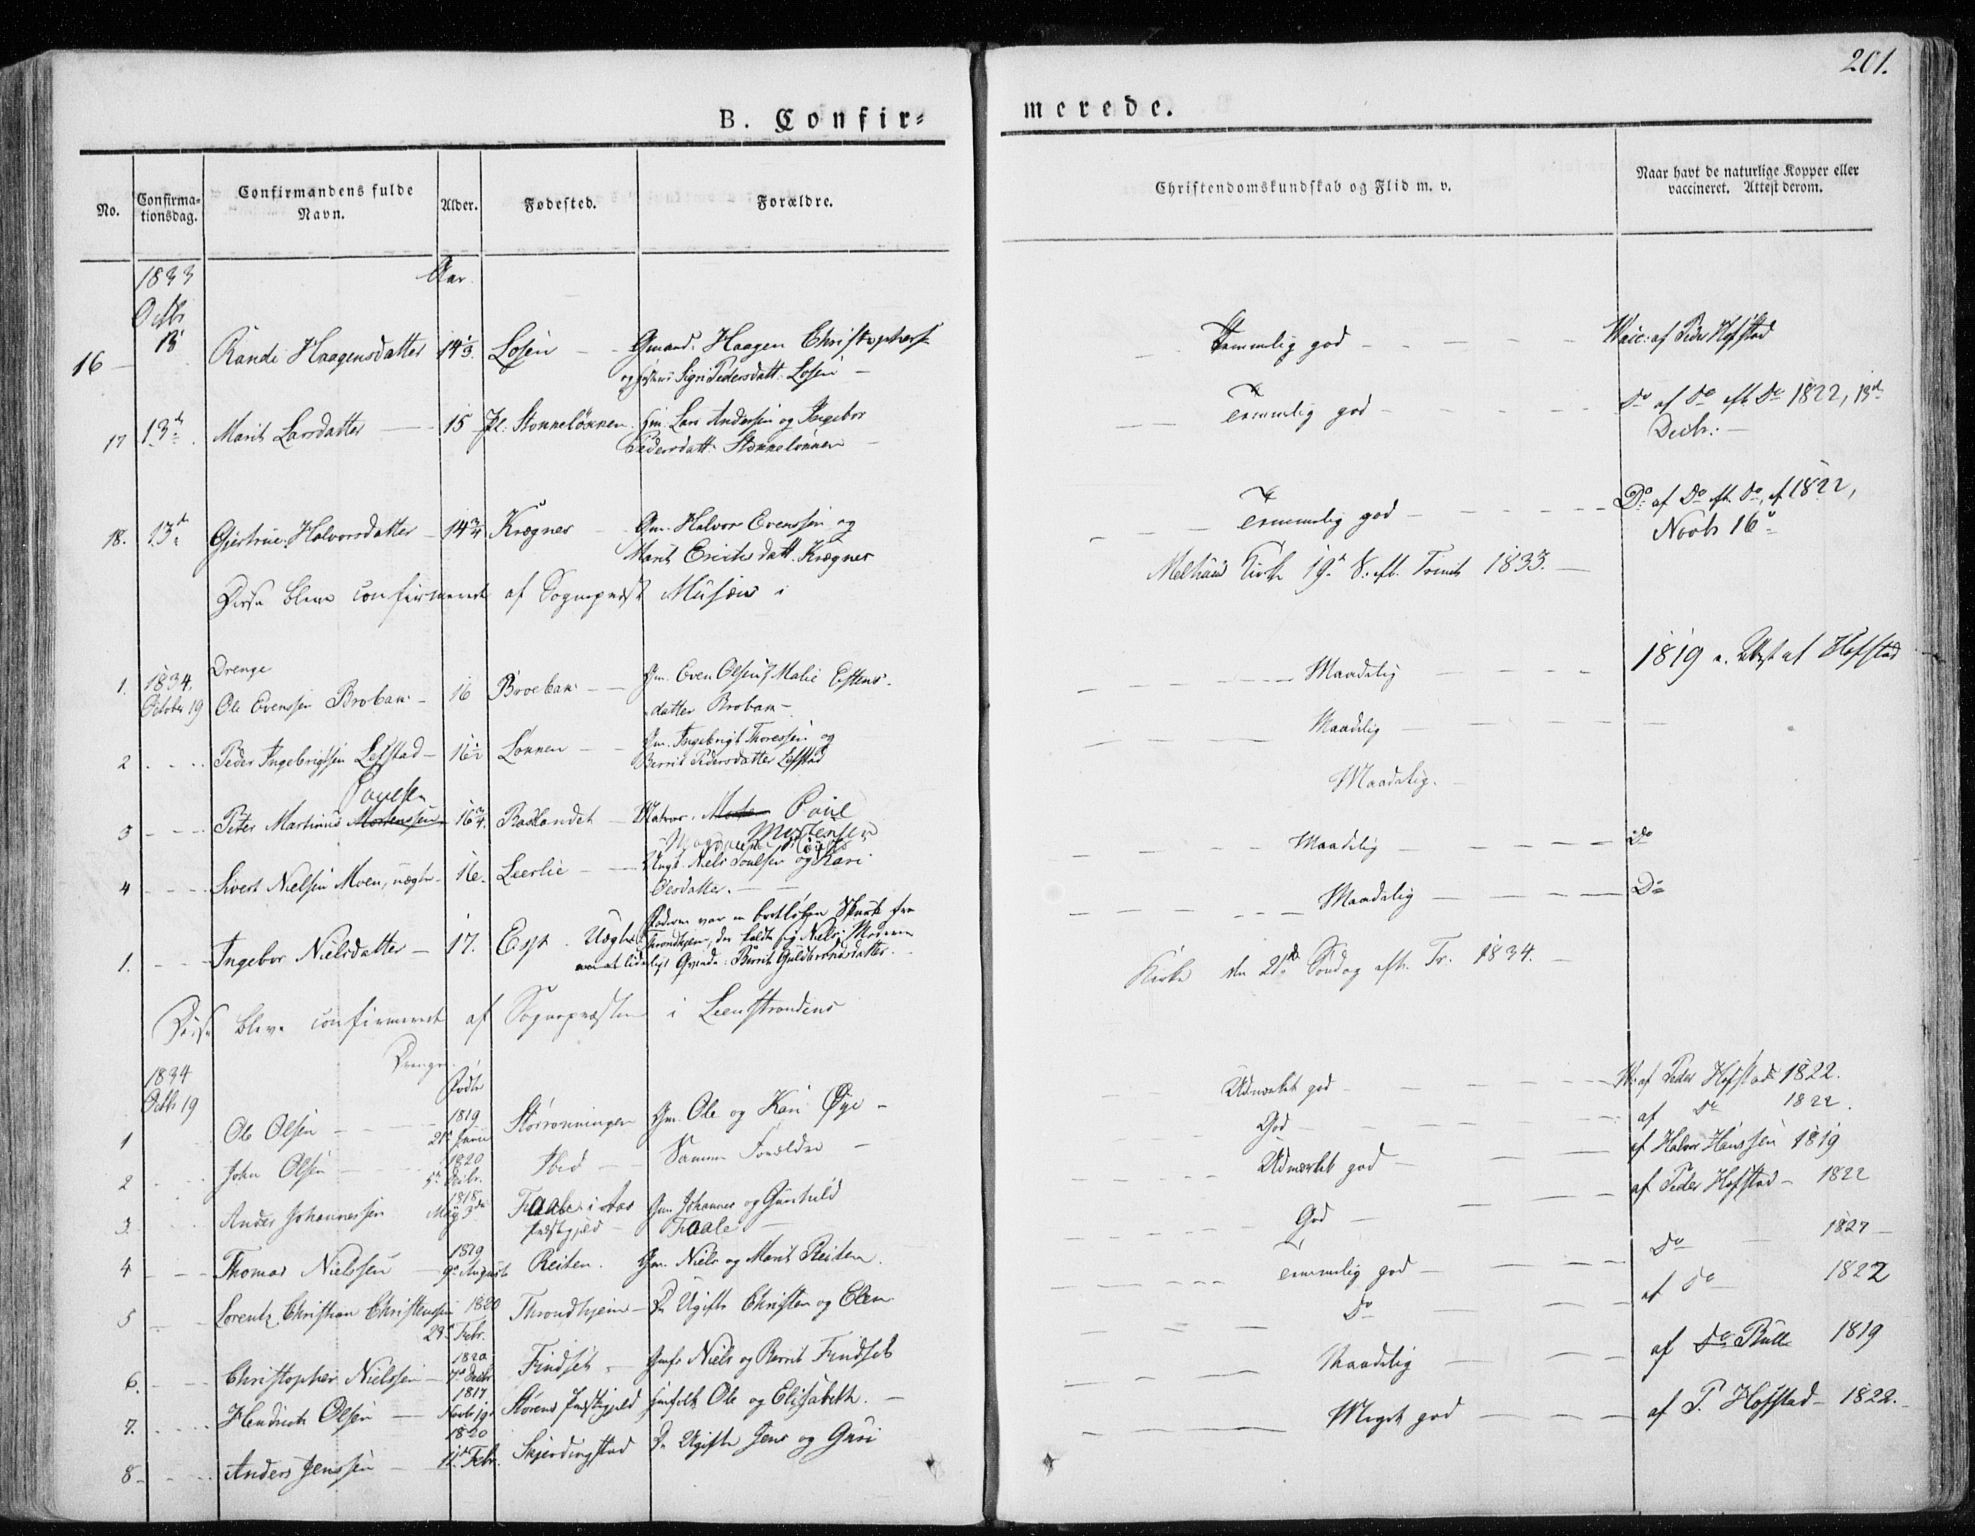 201.
B. Confir-
merede.
No.
Confirma-
tionsdag.
Confirmandens fulde
Navn.
Alder.
Fødested.
Forældre.
Christendomskundskab og Flid m. v.
Naar havt de naturlige Kopper eller
vaccineret. Attest derom.
1833
Octbr
Aar
16 13 Randi Haagensdatter 14 1/3 Losen Gmand. Haagen Christophers
Sigri Pedersdatt. Losen
Temmelig god Vacc: af Peder Hofstad
17 13d Marit Larsdatter 15 Pl. Stonneløkken Gm. Lars Andersen og Ingebor
Pedersdatt. Stonneløkken
Temmelig god Do af Do 1822, 13d
Decbr:
18. 13d Gjertrue Halvorsdatter 14 3/4 Kregnes Gm. Halvor Evensen og
Marit Erichsdatt. Kregnes
Temmelig god Do af Do 1822,
Novbr 16
Disse bleve confirmeret af Sognepræst Musæus i
Melhuus Kirke 19de S. eft. Trinit 1833.
Drenge
1. 1834. October 19 Ole Evensen Brobak 16 Broebak Gm. Even Olsen, Malie Estens-
datter Brobak
Maadelig 1819 Attest af Hofstad
2 Peder Ingebrigtsen Lefstad 16 1/2 Lønnen Gm. Ingebrigt Thoresen og
Berrit Pedersdatter Lefstad
Maadelig
Poulsen
3 Peter Martinus Mortensen 16 3/4 Baklandet Matros Paul
Mortensen
Maadelig.
4 Sivert Nielsen Moen, uægte 16. Leerlie Ungk. Niels Poulsen og Kari
Olsdatter.
Maadelig Do
1. Ingebor Nielsdatter 17. Esp. Uægte Faderen var en bortløben Skurk fra
Trondhjem, der kaldte sig Niels, Moderen
Berrit Guldbrandsdatter.
Maadelig Do
Disse bleve confirmeret af Sognepræsten i Leenstrandens
Kirke den 21de Søndag eft. Tr. 1834.
Drenge
1834
Octbr 19
Fødte
1 Ole Olsen 1819
21de Junii Størrønningen Gm. Ole og Kari Øye
Udmærket god V: af Peder Hofstad 1822.
2 John Olsen 1820
5te Decbr. Ibid Samme Forældre
God af Do 1822.
3. Anders Johannessen 1818
May 3de Faale i Aas
Præstegjeld Gm. Johannes og Gunhild
Faale
Udmærket god af Halvor Hanssen 1819
4 Thomas Nielssen 1819
9de August Reiten. Gm. Niels og Marit Reiten.
God af Peder Hofstad 1822
5 Lorentz Christian Christensen 1820
29de Febr. Throndhjem De Ugifte Christen og Elen
Temmelig god Do 1822
6. Christopher Nielssen 1820
7de Decbr Findset Gmfk Niels og Berrit Findset
Do af Do 1822
7. Hendrich Olsen 1817
Novbr 19de Størens Præstegjeld Gmfolk Ole og Elisabeth.
Maadelig af Do Bull 1819
8 Anders Jenssen 1820
11te Febr. Skjerdingstad De Ugifte Jens og Guri
Meget god af P. Hofstad 1822.